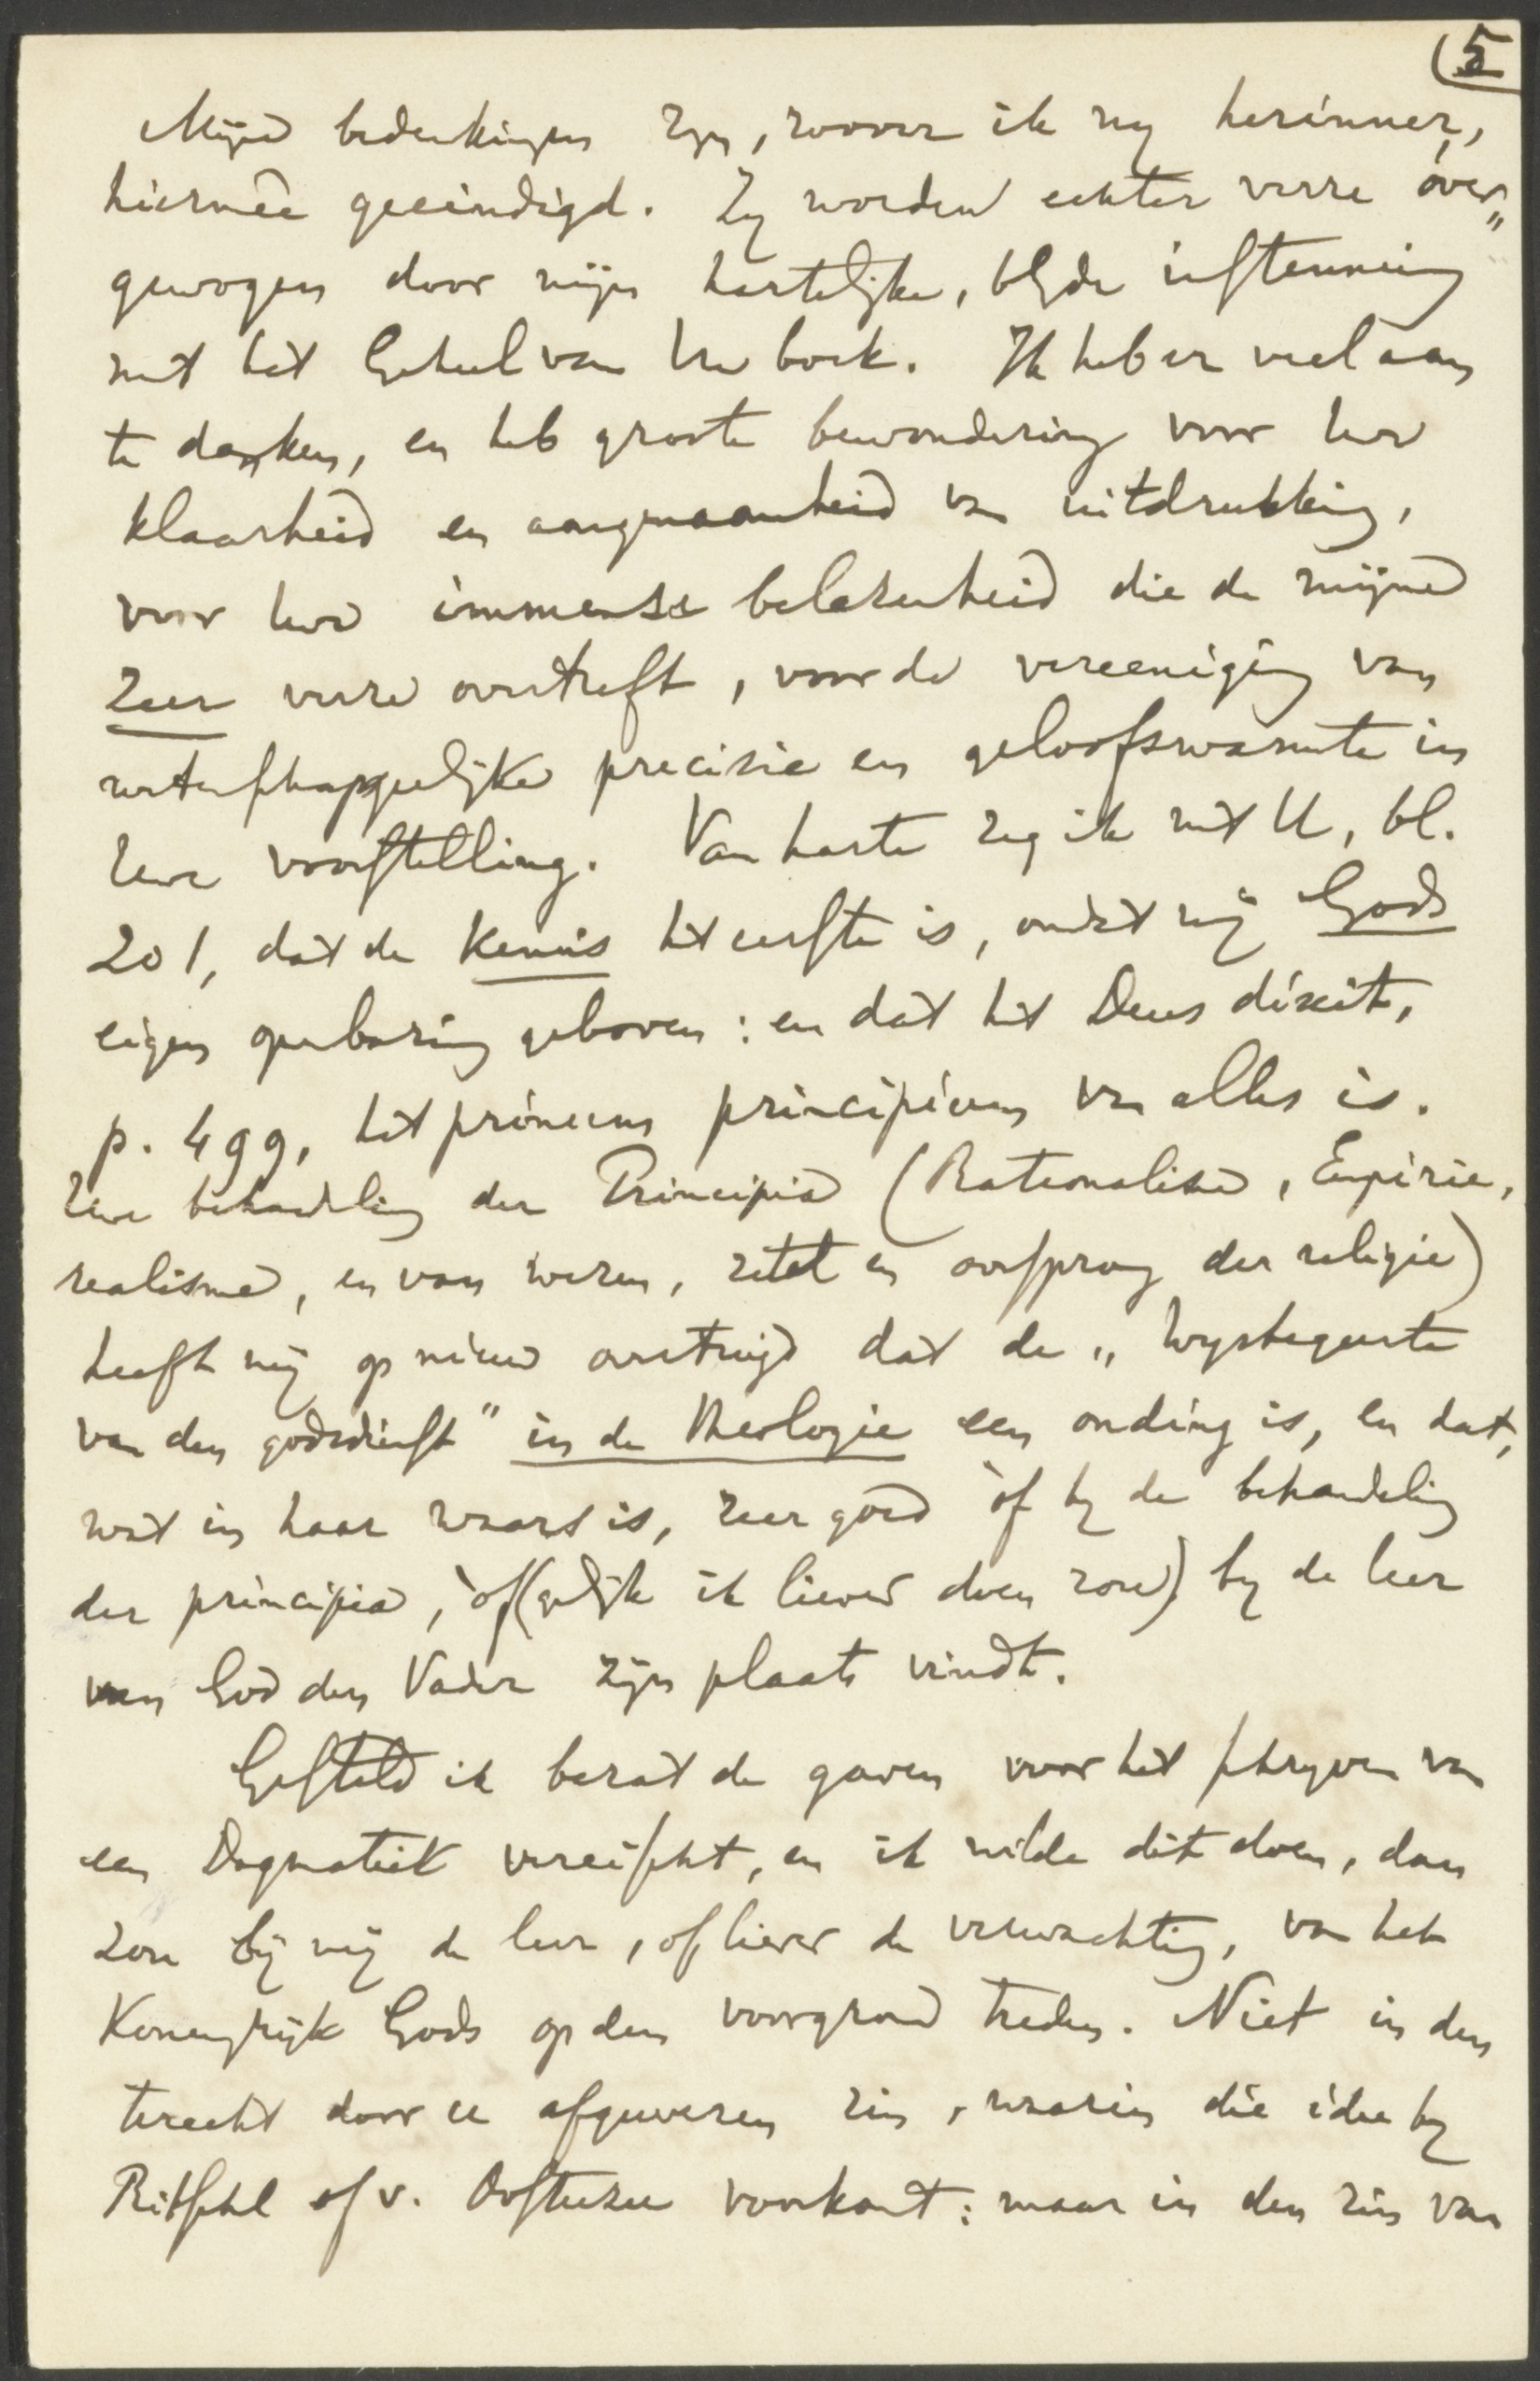 (5
Mijne bedenkingen zijn, zoover ik mij herinner,
hiermêe geeindigd. Zij worden echter verre over„
gewogen door mijn hartelijke, blijde instemming
met het Geheel van Uw boek. Ik heb er veel aan
te danken, en heb groote bewondering voor Uw
klaarheid en aangenaamheid van uitdrukking,
voor Uwe immense belezenheid die de mijne
zeer verre overtreft, voor de vereeniging van
wetenschappelijke precisie en geloofswarmte in
Uwe voorstelling. Van harte zeg ik met U, bl.
201, dat de kennis het eerste is, omdat zij Gods
eigen openbaring geboren: en dat het Deus dixit,
p. 499, het primum principium van alles is.
Uwe behandeling der Principia (Rationalisme, Empirie,
realisme, en van wezen, zetel en oorsprong der religie)
heeft mij op nieuw overtuigd dat de „Wijsbegeerte
van den godsdienst" in de Theologie een onding is, en dat,
wat in haar waars is, zeer goed òf bij de behandeling
der principia, òf (gelijk ik liever doen zou) bij de leer
van God den Vader zijn plaats vindt.
Gesteld ik bezat de gaven voor het schrijven van
een Dogmatiek vereischt, en ik wilde dit doen, dan
zou bij mij de leer, of liever de verwachting, van het
Koningrijk Gods op den voorgrond treden. Niet in den
terecht door U afgewezen zin, waarin die idee bij
Ritschl of v. Oosterzee voorkomt: maar in den zin van